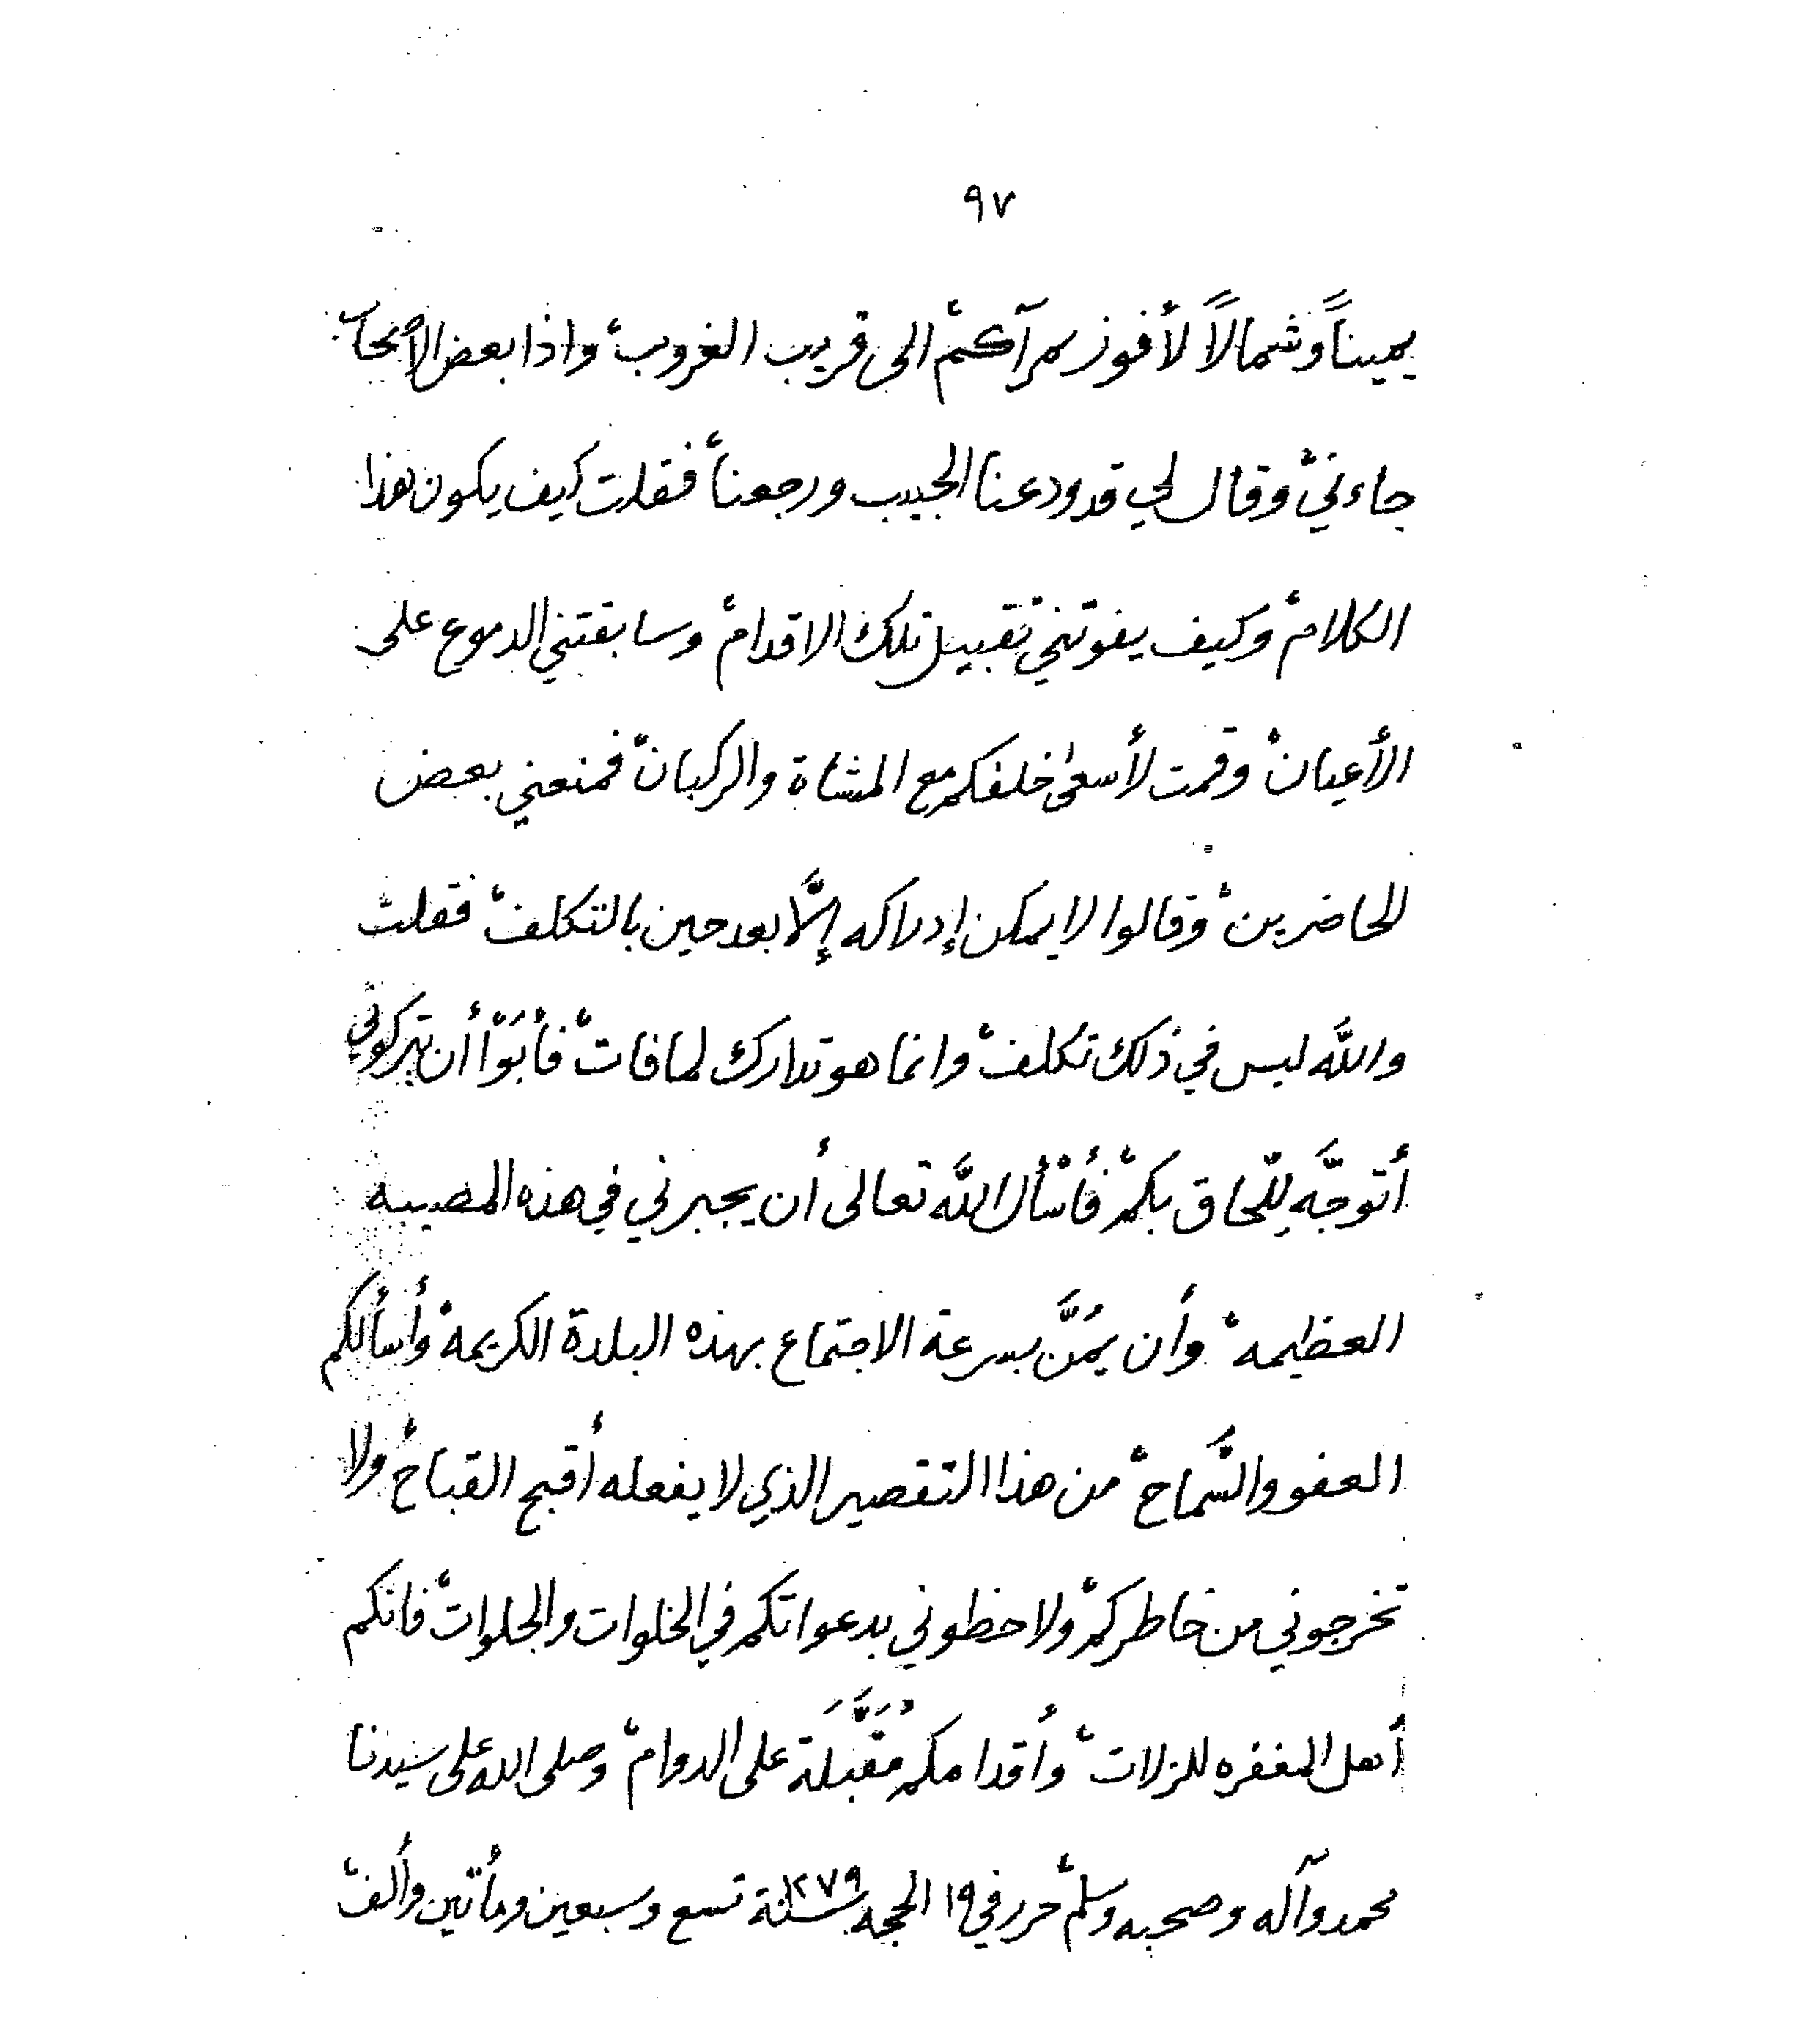 ٩٧
يميناً وشمالاً لأفوز بمرآكم، الى قريب الغروب، واذا بعض الأصحاب
جاءني، وقال لي قد ودعنا الحبيب ورجعنا، فقلت كيف يكون هذا
الكلام، وكيف يفوتني تقبيل تلك الاقدام، وسابقتني الدموع على
الأعيان، وقمت لأسعى خلفكم مع المشاة والركبان، فمنعني بعض
الحاضرين، وقالوا لا يمكن إدراكه إلَّا بعد حين بالتكلف، فقلت
والله ليس في ذلك تكلف، وانما هو تدارك لما فات، فأَبَوْا أن يتركوني
أتوجَّه للّحاق بكم، فأَسْأَل اللَّه تعالى أن يجبرني في هذه المصيبه
العظيمه، وأن يمُنَّ بسرعة الاجتماع بهذه البلدة الكريمة، وأسألكم
العفو والسَّماح، من هذا التقصير الذي لا يفعله أقبح القباح، ولا
تخرجوني من خاطركم، ولاحظوني بدعواتكم في الخلوات والجلوات، فانكم
أهل المغفره للزلات، وأقدامكم مُقَبَّلَة على الدوام، وصلى الله على سيدنا
محمد وآله وصحبه وسلم، حرر في ١٩ الحجه سنة ١٢٧٩ تسع وسبعين ومأتين وألف،